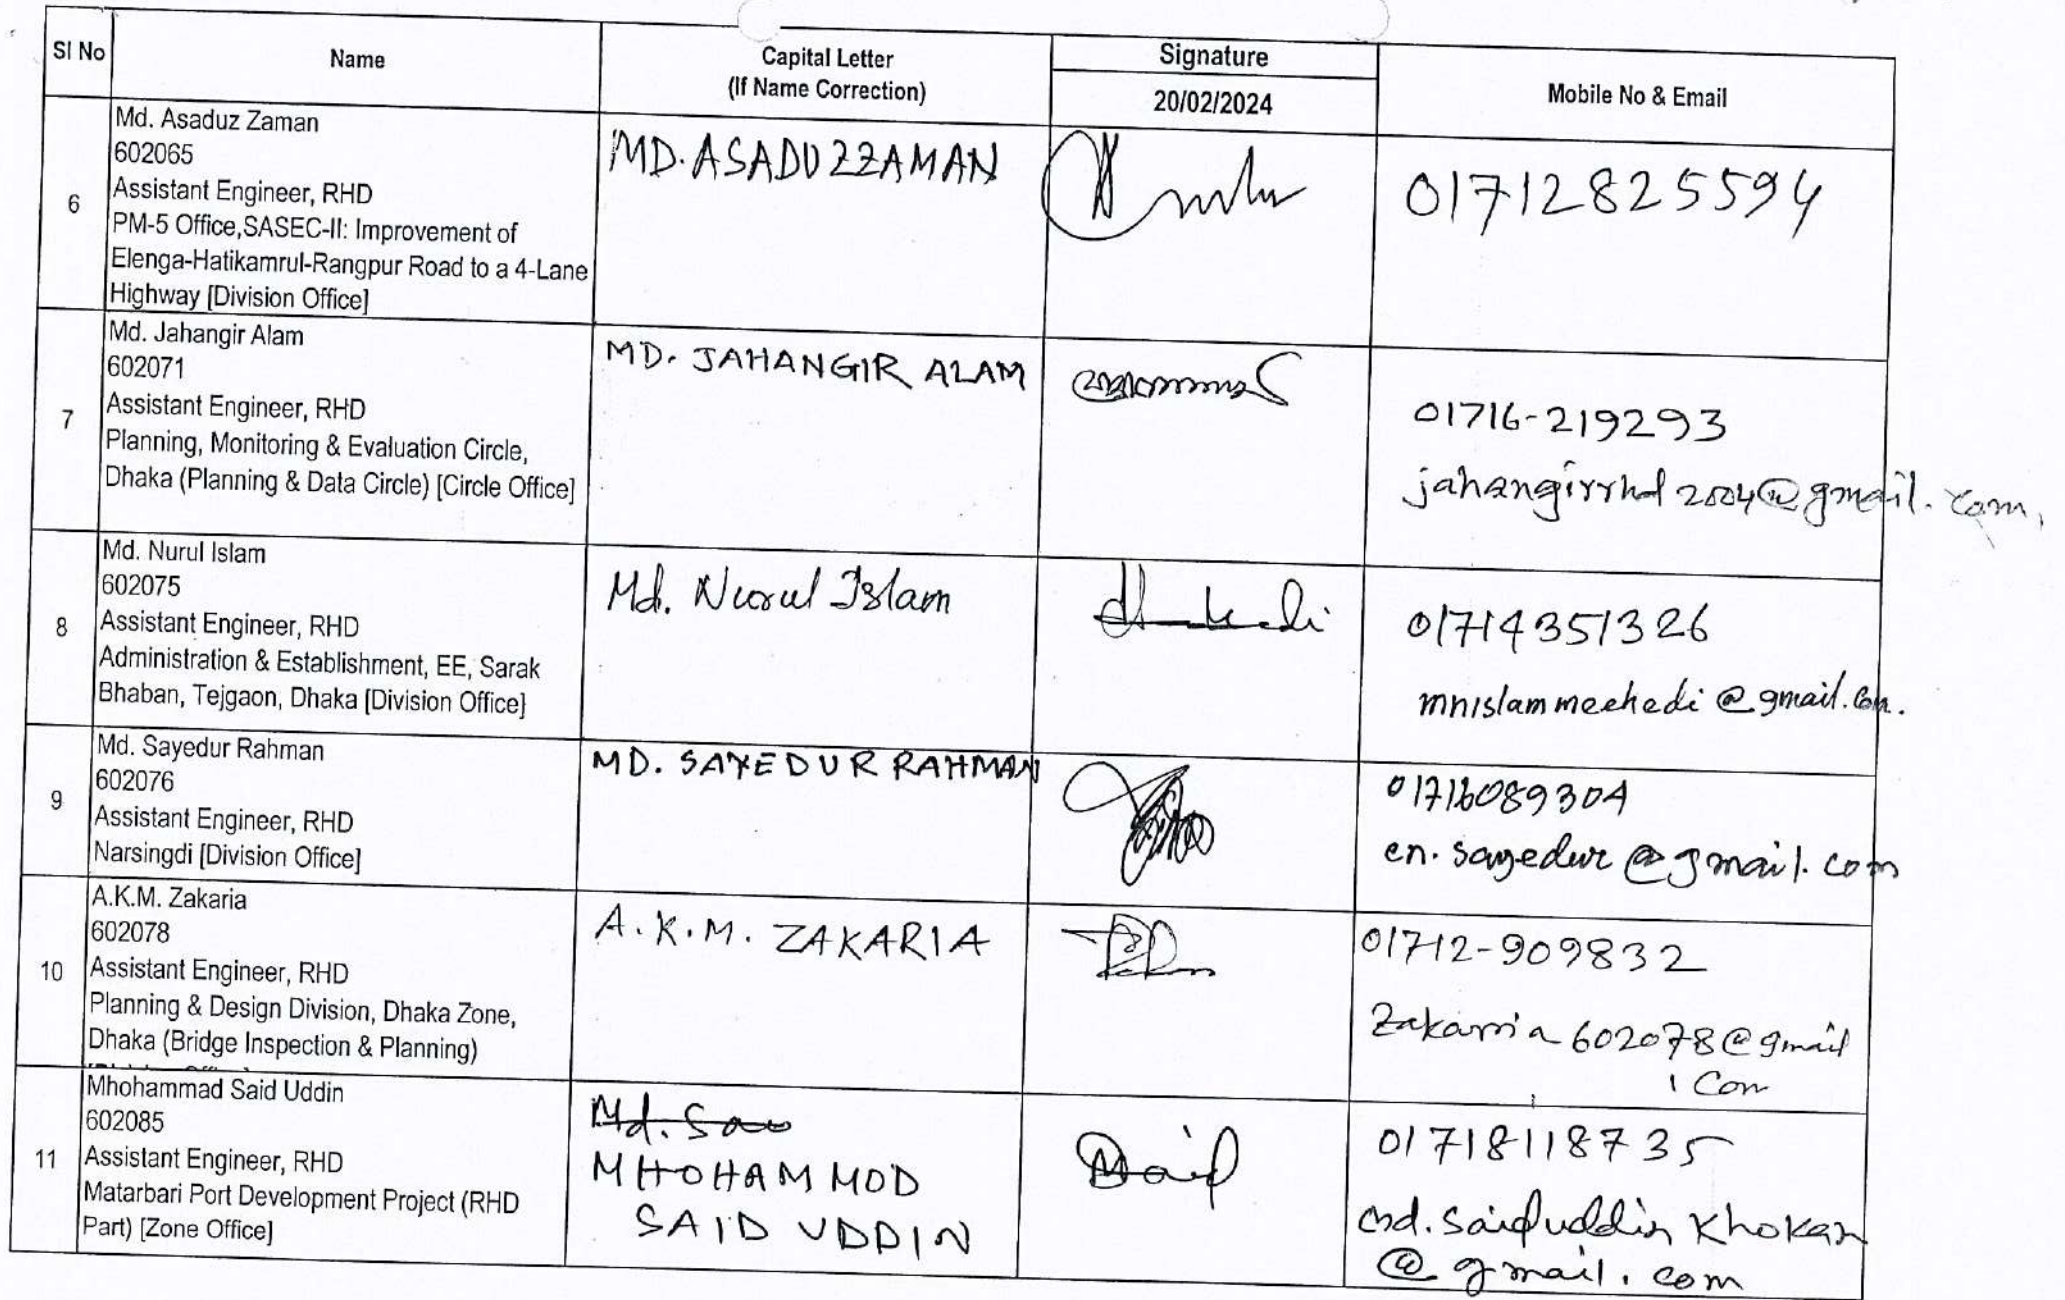 Sl No
Name
Capital Letter
(If Name Correction)
Signature
20/02/2024
Mobile No & Email
6
Md. Asaduz Zaman
602065
Assistant Engineer, RHD
PM-5 Office,SASEC-II: Improvement of
Elenga-Hatikamrul-Rangpur Road to a 4-Lane
Highway [Division Office]
MD. ASADUZZAMAN
01712825594
7
Md. Jahangir Alam
602071
Assistant Engineer, RHD
Planning, Monitoring & Evaluation Circle,
Dhaka (Planning & Data Circle) [Circle Office]
MD. JAHANGIR ALAM
01716-219293
jahangirrhd2004@gmail.com,
8
Md. Nurul Islam
602075
Assistant Engineer, RHD
Administration & Establishment, EE, Sarak
Bhaban, Tejgaon, Dhaka [Division Office]
Md. Nurul Islam
01714351326
mnislammeehedi@gmail.com.
9
Md. Sayedur Rahman
602076
Assistant Engineer, RHD
Narsingdi [Division Office]
MD. SAYEDUR RAHMAN
01716089304
en.sayedur@gmail.com
10
A.K.M. Zakaria
602078
Assistant Engineer, RHD
Planning & Design Division, Dhaka Zone,
Dhaka (Bridge Inspection & Planning)
A.K.M. ZAKARIA
01712-909832
Zakarria602078@gmail
.com
11
Mhohammad Said Uddin
602085
Assistant Engineer, RHD
Matarbari Port Development Project (RHD
Part) [Zone Office]
MHOHAMMOD
SAID UDDIN
01718118735
md.saifuddin khokan
@gmail.com